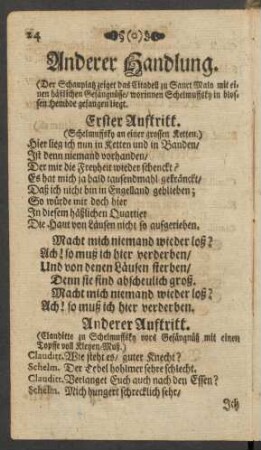 24 §(o)§
Anderer Handlung.
(Der Schauplatz zeiget das Citadell zu Sanct Malo mit ei-
nen häßlichen Gefängnüsse/ worinnen Schelmuffsky in blos-
sen Hembde gefangen liegt.
Erster Aufftritt.
(Schelmuffsky an einer grossen Ketten.)
Hier lieg ich nun in Ketten und in Banden/
Ist denn niemand vorhanden/
Der mir die Freyheit wieder schenckt?
Es hat mich ja bald tausendmahl gekränckt/
Daß ich nicht bin in Engelland geblieben;
So würde mir doch hier
In diesem häßlichen Quartier
Die Haut von Läusen nicht so auffgerieben.
Macht mich niemand wieder loß?
Ach! so muß ich hier verderben/
Und von denen Läusen sterben/
Denn sie sind abscheulich groß.
Macht mich niemand wieder loß?
Ach! so muß ich hier verderben.
Anderer Aufftritt.
(Clauditte zu Schelmuffsky vors Gefängnüß mit einen
Topffe voll Kleyen-Muß.)
Clauditt. Wie steht es/ guter Knecht?
Schelm. Der Tebel hohlmer sehre schlecht.
Clauditt. Verlanget Euch auch nach den Essen?
Schelm. Mich hungert schrecklich sehr/
Ich